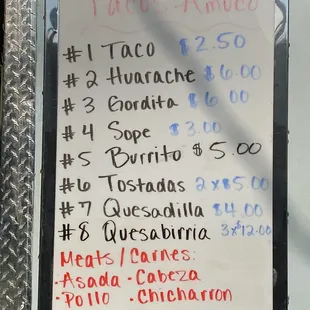 Tacos Amuco
#1 Taco $2.50
#2 Huarache $6.00
#3 Gordita $6.00
#4 Sope $3.00
#5 Burrito $5.00
#6 Tostadas 2x$5.00
#7 Quesadilla $4.00
#8 Quesabirria 3x$12.00
Meats/Carnes:
·Asada ·Cabeza
·Pollo ·Chicharron